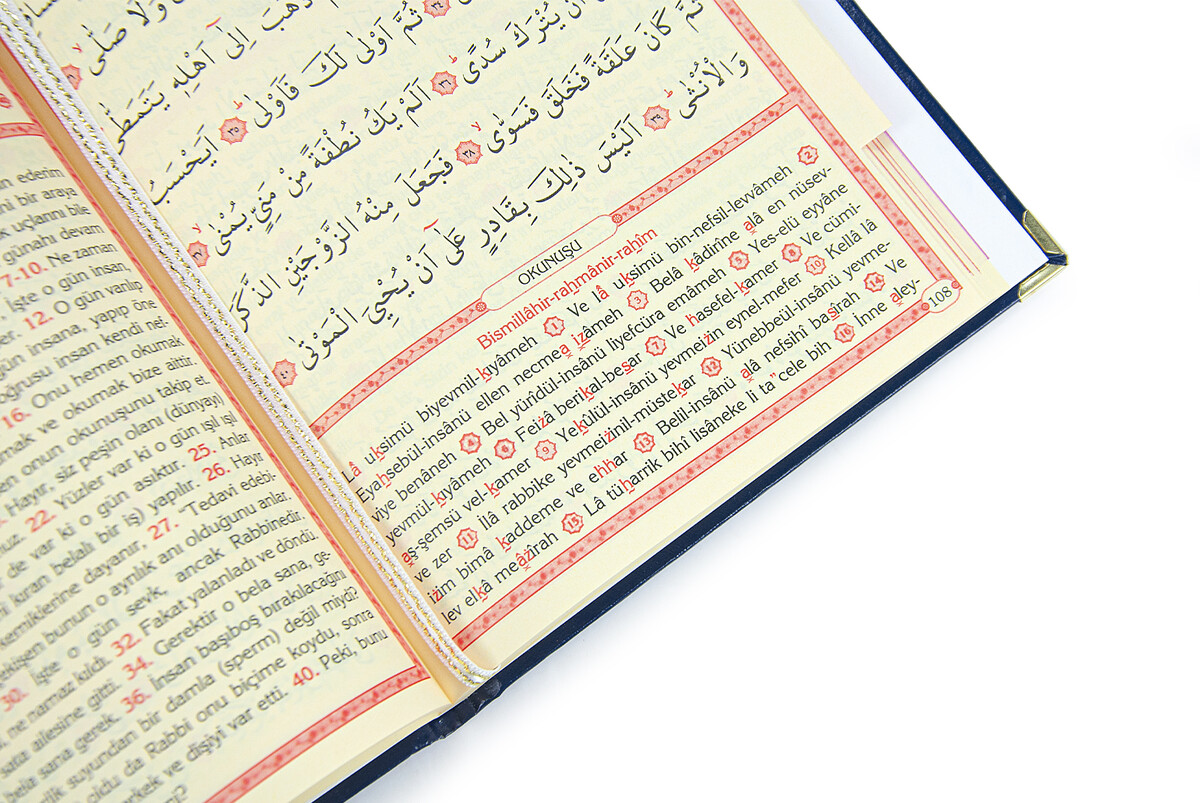 وَلَا صَلّٰى
ذَهَبَ اِلٰٓى اَهْلِه۪ يَتَمَطّٰى
ثُمَّ اَوْلٰى لَكَ فَاَوْلٰى ﴿٣٥﴾ اَيَحْسَبُ
اَنْ يُتْرَكَ سُدًى ﴿٣٦﴾ اَلَمْ يَكُ نُطْفَةً مِنْ مَنِيٍّ يُمْنٰى ﴿٣٧﴾
ثُمَّ كَانَ عَلَقَةً فَخَلَقَ فَسَوّٰى ﴿٣٨﴾ فَجَعَلَ مِنْهُ الزَّوْجَيْنِ الذَّكَرَ
وَالْاُنْثٰى ﴿٣٩﴾ اَلَيْسَ ذٰلِكَ بِقَادِرٍ عَلٰٓى اَنْ يُحْيِيَ الْمَوْتٰى ﴿٤٠﴾
OKUNUŞU
Bismillâhir-rahmânir-rahîm
Lâ uksimü biyevmil-kıyâmeh 1 Ve lâ uksimü bin-nefsil-levvâmeh 2
Eyahsebül-insânü ellen necmea izâmeh 3 Belâ kâdirîne alâ en nüsev-
viye benâneh 4 Bel yürîdül-insânü liyefcüra emâmeh 5 Yes-elü eyyâne
yevmül-kıyâmeh 6 Feizâ berikal-besar 7 Ve hasefel-kamer 8 Ve cümi-
aş-şemsü vel-kamer 9 Yekûlül-insânü yevmeizin eynel-mefer 10 Kellâ lâ
ve zer 11 İlâ rabbike yevmeizinil-müstekar 12 Yünebbeül-insânü yevme-
izim bimâ kaddeme ve ehhar 13 Belil-insânü alâ nefsihî basîrah 14 Ve
lev elkâ meâzîrah 15 Lâ tüharrik bihî lisâneke li ta"cele bih 16 İnne aley-
108
ederim
bir araya
k uçlarını bile
günahı devam
7-10. Ne zaman
İşte o gün insan,
12. O gün varılıp
gün insana, yapıp öne
oğrusu insan kendi nef-
16. Onu hemen okumak
mak ve okumak bize aittir.
en onun okunuşunu takip et.
Hayır, siz peşin olanı (dünyayı)
22. Yüzler var ki o gün ışıl ışıl
de var ki o gün asıktır. 25. Anlar
kıran belalı bir iş) yapılır. 26. Hayır
kemiklerine dayanır, 27. "Tedavi edebi-
bunun o ayrılık anı olduğunu anlar.
30. İşte o gün sevk, ancak Rabbinedir.
ne namaz kıldı. 32. Fakat yalanladı ve döndü.
ailesine gitti. 34. Gerektir o bela sana, ge-
bela sana gerek. 36. İnsan başıboş bırakılacağını
suyundan bir damla (sperm) değil miydi?
oldu da Rabbi onu biçime koydu, sonra
erkek ve dişiyi var etti. 40. Peki, bunu